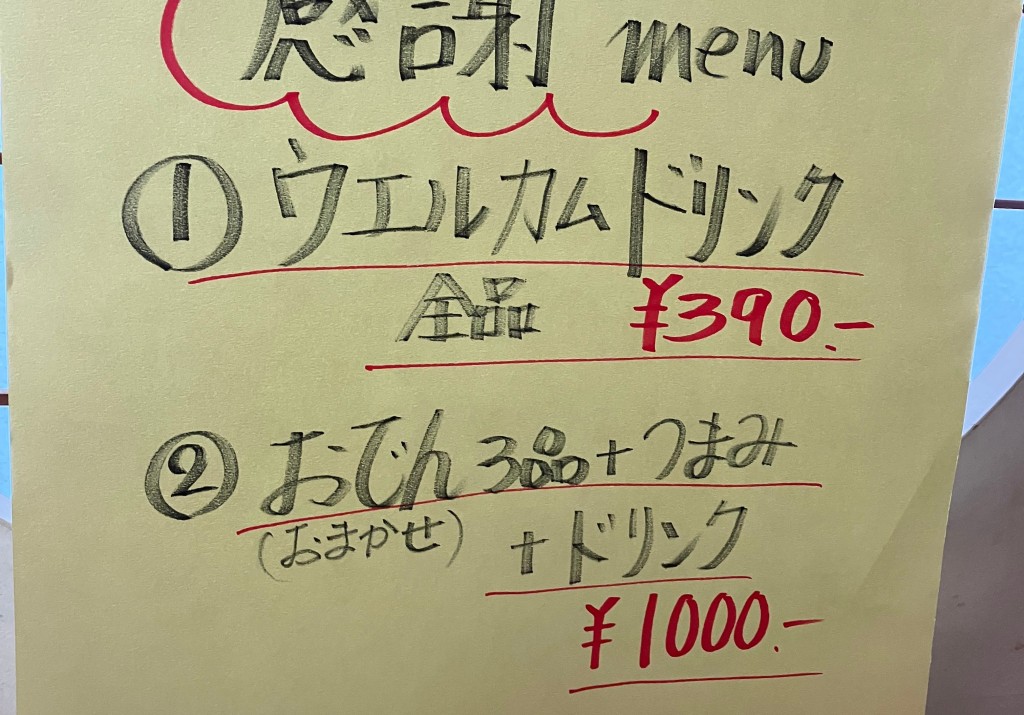 感謝 menu
① ウエルカムドリンク
全品 ¥390.-
② おでん 3品+つまみ
(おまかせ) +ドリンク
¥1000.-